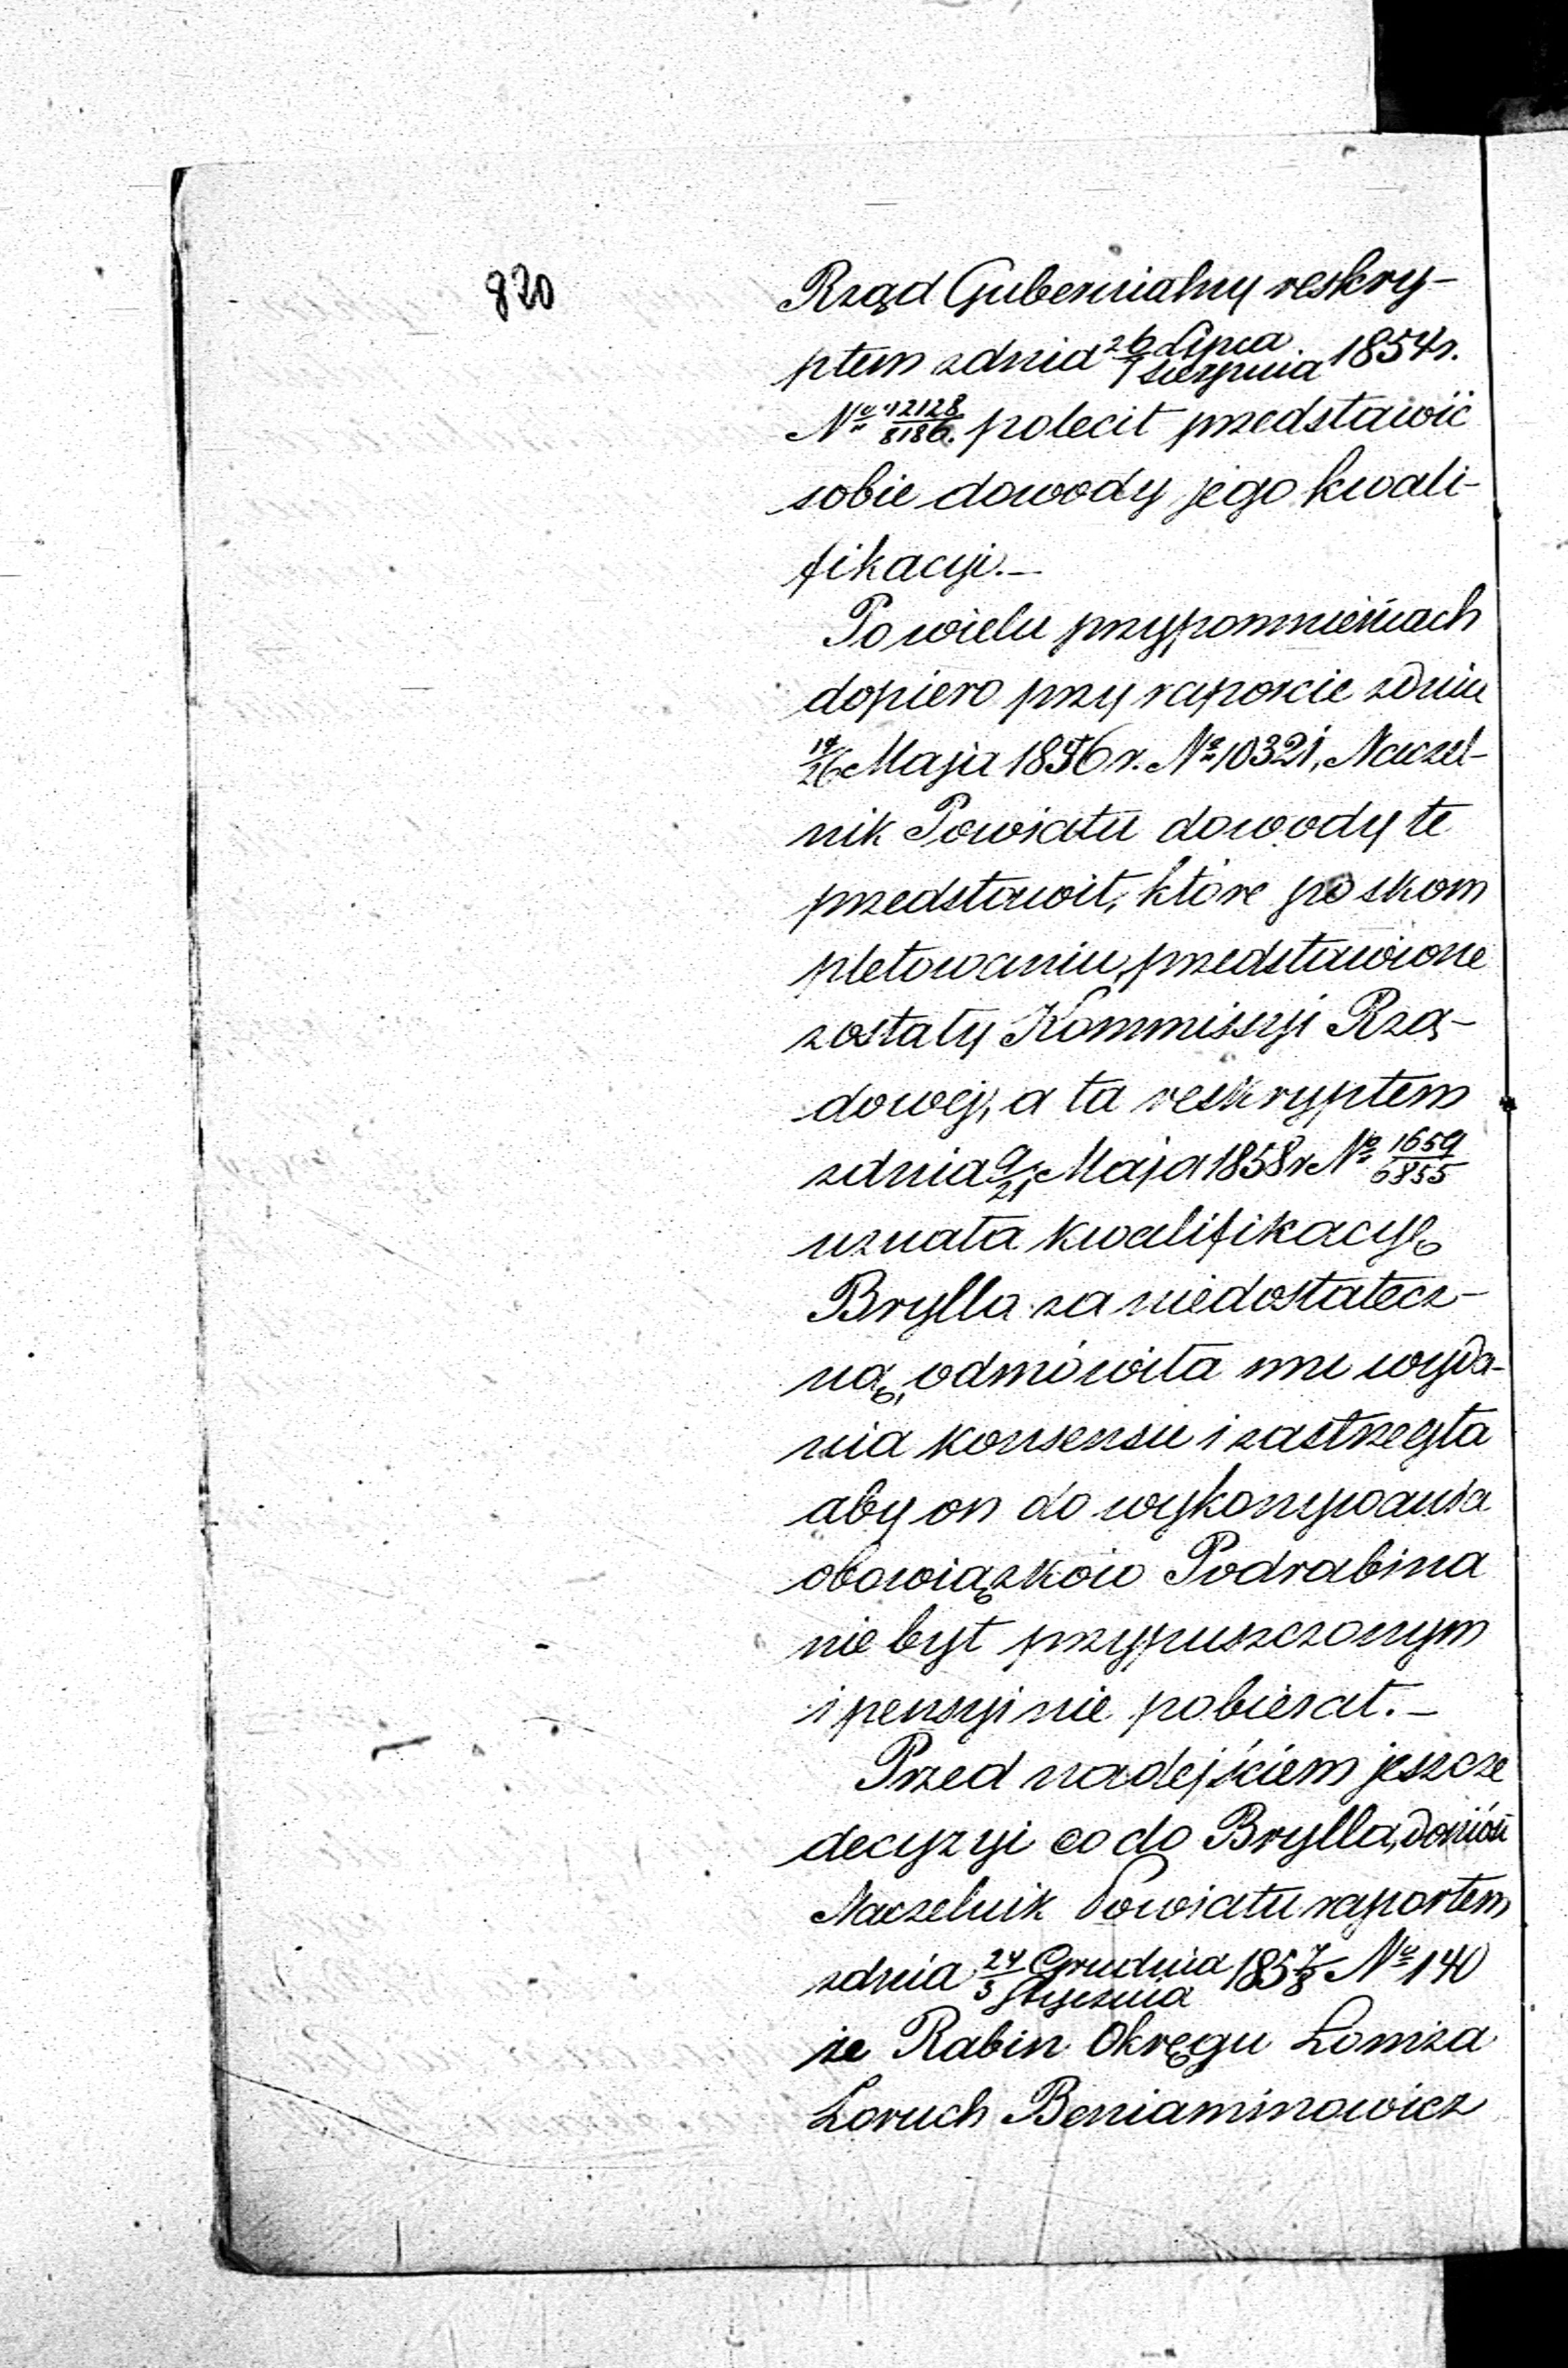 820
Rząd Gubernialny reskry-
ptem zdnia 26 Lipca/7 Sierpnia 1854 r.
No 12128/8186. polecił przedstawić
sobie dowody jego kwali-
fikacyi.—
Po wielu przypomnieniach
dopiero przy raporcie zdniu
14/26 Maja 1856 r. No 10321, Naczel-
nik Powiatu dowody te
przedstawił, które po skom
pletowaniu, przedstawione
zostały Kommissyi Rzą-
dowej, a ta reskryptem
zdnia 9/21 Maja 1858 r No 1659/6855
uznała kwalifikacyę
Brylla za niedostatecz-
ną, odmówiła mu wyda-
nia konsensu i zastrzegła
aby on do wykonywania
obowiązków Podrabina
nie był przypuszczonym
i pensyi nie pobierał.—
Przed nadejściem jeszcze
decyzyi co do Brylla, doniósł
Naczelnik Powiatu raportem
zdnia 24 Grudnia/5 Stycznia 1857/8 No 140
że Rabin Okręgu Łomża
Boruch Beniaminowicz